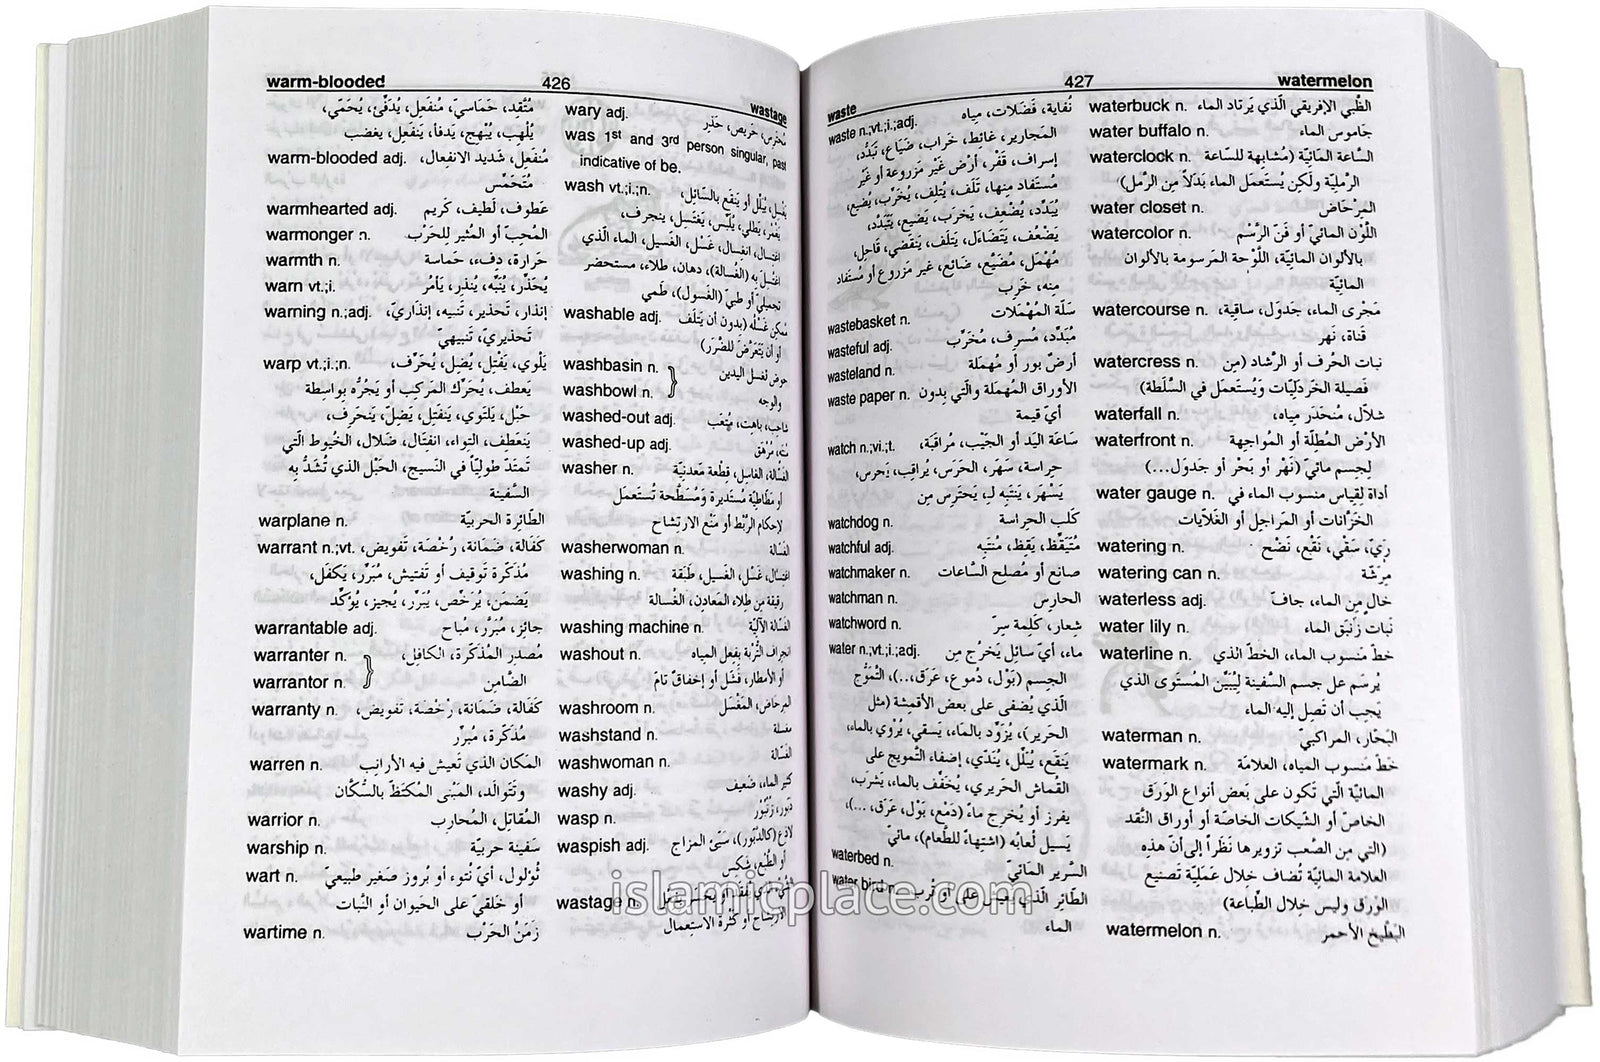 warm-blooded 426 wastage
مُتَّقِد، حَمَاسيّ، مُنفَعِل، يُدَفِّئ، يُحَمِّي،
يُلْهِب، يُبْهِج، يَدفَأ، يَنفَعِل، يغضب
warm-blooded adj. مُنفَعِل، شَديد الانفِعال،
مُتَحَمِّس
warmhearted adj. عَطوف، لَطيف، كَريم
warmonger n. المُحِبّ أو المُثير للحَرْب
warmth n. حَرارة، دفء، حَماسة
warn vt.;i. يُحَذِّر، يُنَبِّه، يُنذِر، يَأمُر
warning n.;adj. إنذار، تَحذير، تَنبيه، إنذاريّ،
تَحذيريّ، تَنبيهيّ
warp vt.;i.;n. يَلْوي، يَفْتِل، يُضِل، يُحَرِّف،
يَعطِف، يُحَرِّك المَركِب أو يَجُرُّه بواسِطة
حَبْل، يَلتَوي، يَنفَتِل، يَضِلّ، يَنحَرِف،
يَنعَطِف، التِواء، انفِتال، ضَلال، الخُيوط الَّتي
تَمتَدّ طوليًّا في النَسيج، الحَبْل الذي تُشَدُّ بِهِ
السَّفينة
warplane n. الطَّائِرة الحَربيّة
warrant n.;vt. كَفَالَة، ضَمَانَة، رُخْصَة، تَفويض،
مُذَكّرة تَوقيف أو تَفتيش، مُبَرِّر، يَكفَل،
يَضمَن، يُرَخِّص، يُبَرِّر، يُجيز، يُؤَكِّد
warrantable adj. جائِز، مُبَرَّر، مُباح
warranter n. مُصدِر المُذَكَّرة، الكافِل،
warrantor n. الضَّامِن
warranty n. كَفَالَة، ضَمَانَة، رُخْصَة، تَفويض،
مُذَكّرة، مُبَرِّر
warren n. المَكان الذي تَعيش فيه الأرانِب
وتَتَوالَد، المَبْنى المُكتَظّ بالسُّكَّان
warrior n. المُقاتِل، المُحارِب
warship n. سَفينة حَربيّة
wart n. ثُؤلول، أيّ نُتوء أو بُروز صَغير طَبيعيّ
أو خَلقيّ على الحَيوان أو النَّبات
wartime n. زَمَنُ الحَرْب
wary adj. مُحترِس، حَريص، حَذِر
was 1st and 3rd person singular, past
indicative of be.
wash vt.;i.;n. يَغسِل، يُبَلِّل أو يَنقَع بالسَّائِل،
يَغْمُر، يَطلي، يُلَبِّس، يَغتَسِل، ينجرف،
اغتِسال، انغِسال، غَسْل، الغَسيل، الماء الَّذي
اغتُسِل بِهِ (الغُسالة)، دهان، طِلاء، مستحضر
تجميليّ أو طبيّ (الغَسول)، طَمي
washable adj. يُمكِن غَسْلُه (بدون أن يَتْلَف
أو أن يَتَعَرَّضَ للضَّرَر)
washbasin n. حوض لغسل اليدين
washbowl n. والوجه
washed-out adj. شاحِب، باهِت، مُتْعَب
washed-up adj. مُرْهَق
washer n. الغسّالة، الغاسِل، قِطعة مَعدِنيّة
أو مَطّاطيّة مُستَديرة ومُسَطَّحة تُستعمَل
لإحكام الرَّبْط أو مَنْع الارتِشاح
washerwoman n. الغسّالة
washing n. اغتِسال، غَسْل، الغَسيل، طَبَقة
رقيقة من طِلاء المَعادِن، الغُسالة
washing machine n. الغسّالة الآليّة
washout n. انجراف التُّربة بفِعل المياه
أو الأمطار، فَشَل أو إخفاق تامّ
washroom n. المِرحاض، المَغْسَل
washstand n. مغسلة
washwoman n. الغسّالة
washy adj. كثير الماء، ضَعيف
wasp n. دَبّور، زُنْبُور
waspish adj. لادغ (كالدَّبّور)، سَيِّئ المزاج
أو الطَّبْع، شَكِس
wastage n.
أو كَثْرة الاستِعمال
waste 427 watermelon
waste n.;vt.;i.;adj. نُفاية، فَضَلات، مِياه
المَجارير، غائط، خَراب، ضَيَاع، تَبَدُّد،
إسراف، قَفْر، أرْض غَيْر مَزروعة أو غَيْر
مُستَفاد مِنها، تَلَف، يُتلِف، يُخَرِّب، يُضيع،
يُبَدِّد، يُضعِف، يَخرَب، يَضيع، يَتَبَدَّد،
يَضْعُف، يَتَضاءَل، يَتلَف، يَنقَضي، قاحِل،
مُهْمَل، مُضَيَّع، ضائِع، غير مَزروع أو مُستَفاد
منه، خَرِب
wastebasket n. سَلّة المُهْمَلات
wasteful adj. مُبَدِّد، مُسرِف، مُخَرِّب
wasteland n. أرضٌ بور أو مُهمَلة
waste paper n. الأوراق المُهمَلة والَّتي بِدون
أيّ قيمة
watch n.;vi.;t. سَاعَة اليَد أو الجَيْب، مُراقَبة،
حِراسة، سَهَر، الحَرَس، يُراقِب، يَحرِس،
يَسْهَر، يَنتَبِه لـِ، يَحتَرِس مِن
watchdog n. كَلب الحِراسة
watchful adj. مُتَيَقِّظ، يَقِظ، مُنتَبِه
watchmaker n. صانِع أو مُصلِح السَّاعات
watchman n. الحارِس
watchword n. شِعار، كَلِمة سِرّ
water n.;vt.;i.;adj. ماء، أيّ سائِل يَخرُج مِن
الجِسم (بَوْل، دُموع، عَرَق،...)، التَّمَوُّج
الَّذي يُضفى على بَعض الأقمِشة (مثل
الحَرير)، يُزَوِّد بالماء، يَسقي، يُرْوي بالماء،
يَنقَع، يُبَلِّل، يُنَدّي، إضفاء التَّمويج على
القُماش الحَريري، يُخَفِّف بالماء، يَشرَب،
يفرز أو يُخرِج ماءً (دَمْع، بَوْل، عَرَق، ...)،
يَسيل لُعابُه (اشتِهاءً للطَّعام)، مائيّ
waterbed n. السَّرير المائيّ
water bird n. الطّائِر الَّذي يَعيش على أو قُرب
الماء
waterbuck n. الظَّبي الإفريقي الَّذي يَرتاد الماء
water buffalo n. جَاموس الماء
waterclock n. السَّاعة المَائيّة (مُشابِهة للسَّاعة
الرَّمليّة ولَكِن يُستَعمَل الماء بَدَلاً مِن الرَّمل)
water closet n. المِرْحَاض
watercolor n. اللَّوْن المائيّ أو فَنّ الرَّسْم
بالألوان المائيّة، اللَّوْحة المَرسومة بالألوان
المائيّة
watercourse n. مَجْرى الماء، جَدوَل، ساقِية،
قَناة، نَهر
watercress n. نَبات الحُرف أو الرَّشاد (مِن
فَصيلة الخَردَليّات ويُستَعمَل في السَّلَطة)
waterfall n. شَلّال، مُنحَدَر مِياه،
waterfront n. الأرْض المُطِلّة أو المُواجِهة
لِجِسم مائيّ (نَهْر أو بَحْر أو جَدوَل...)
water gauge n. أداة لِقِياس مَنسوب الماء في
الخَزَّانات أو المَراجِل أو الغَلّايات
watering n. رَيّ، سَقْي، نَقْع، نَضْح
watering can n. مِرَشّة
waterless adj. خالٍ مِن الماء، جافّ
water lily n. نَبات زَنبَق الماء
waterline n. خَطّ مَنسوب الماء، الخَطّ الذي
يُرسَم على جسم السَّفينة لِيُبَيِّن المُستَوى الذي
يَجِب أن تَصِل إليه الماء
waterman n. البَحّار، المراكبيّ
watermark n. خَطّ مَنسوب المياه، العلامَة
المائيّة الَّتي تَكون على بَعض أنواع الوَرَق
الخاصّ أو الشّيكات الخاصّة أو أوراق النَّقد
(التي من الصَّعب تزويرها نَظَراً إلى أنّ هذه
العلامة المائيّة تُضاف خِلال عَمَليّة تَصنيع
الوَرَق وليس خِلال الطِّباعة)
watermelon n. البَطّيخ الأحمر
islamicplace.com